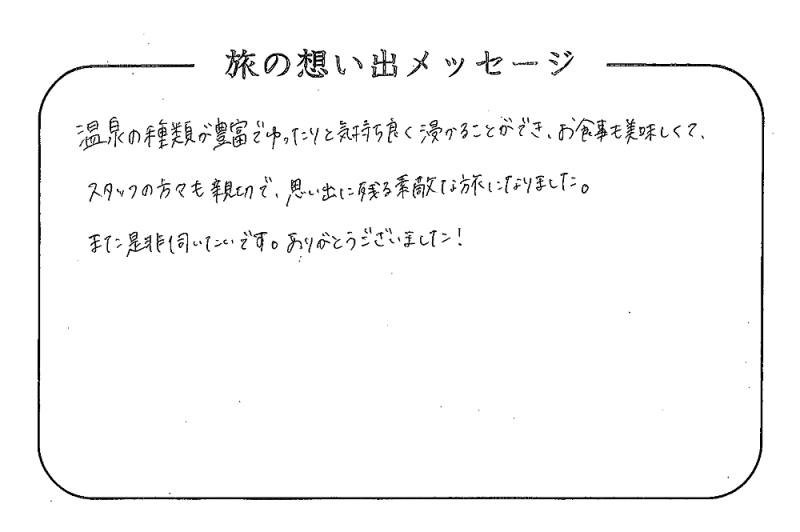 旅の想い出メッセージ
温泉の種類が豊富でゆったりと気持ち良く浸かることができ、お食事も美味しくて、
スタッフの方々も親切で、思い出に残る素敵な旅になりました。
また是非伺いたいです。ありがとうございました!